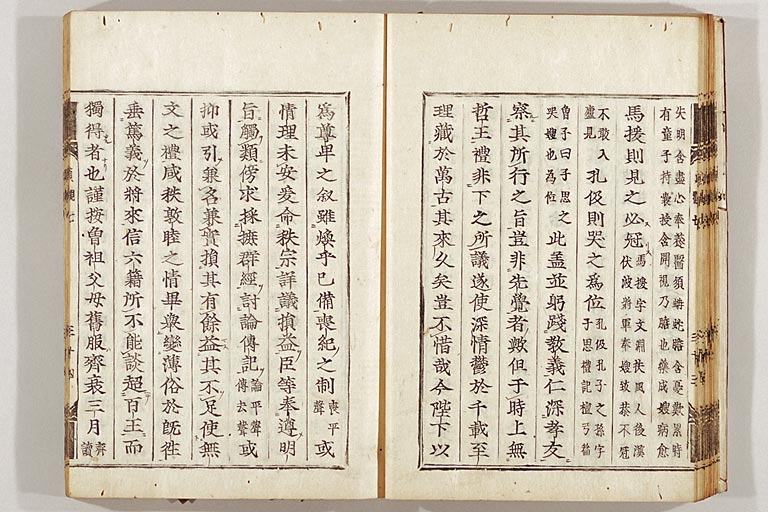 失明含盡心奉養醫須蚺蛇膽含憂歎累時
有童子持囊授含開視乃膽也藥成嫂病愈
馬援則見之必冠馬援字文淵扶風人後漢
伏波將軍奉嫂致恭不冠
不敢入孔伋則哭之爲位孔伋孔子之孫字
廬見子思禮記檀弓篇
曾子曰子思之
哭嫂也爲位此蓋並躬踐敎義仁深孝友
察其所行之旨豈非先覺者歟但于時上無
哲王禮非下之所議遂使深情鬱於千載至
理藏於萬古其來久矣豈不惜哉今陛下以
爲尊卑之叙雖煥乎已備喪紀之制喪平聲或
情理未安爰命秩宗詳議損益臣等奉遵明
旨觸類傍求採摭群經討論傳記論平聲傳去聲或
抑或引兼名兼實損其有餘益其不足使無
文之禮咸秩敦睦之情畢舉變薄俗於旣往
垂篤義於將來信六籍所不能談超百王而
獨得者也謹按曾祖父母舊服齊衰三月齊讀